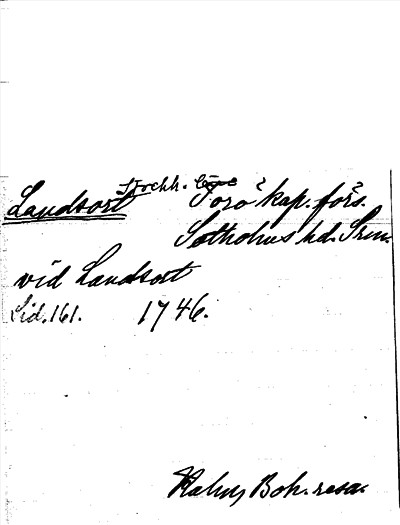 Stockh. läge
Landsort Torö kap. förs.
Sotholms hd. Srm.
vid Landsort
Sid. 161. 1746.
Kalm, Boh. resa.